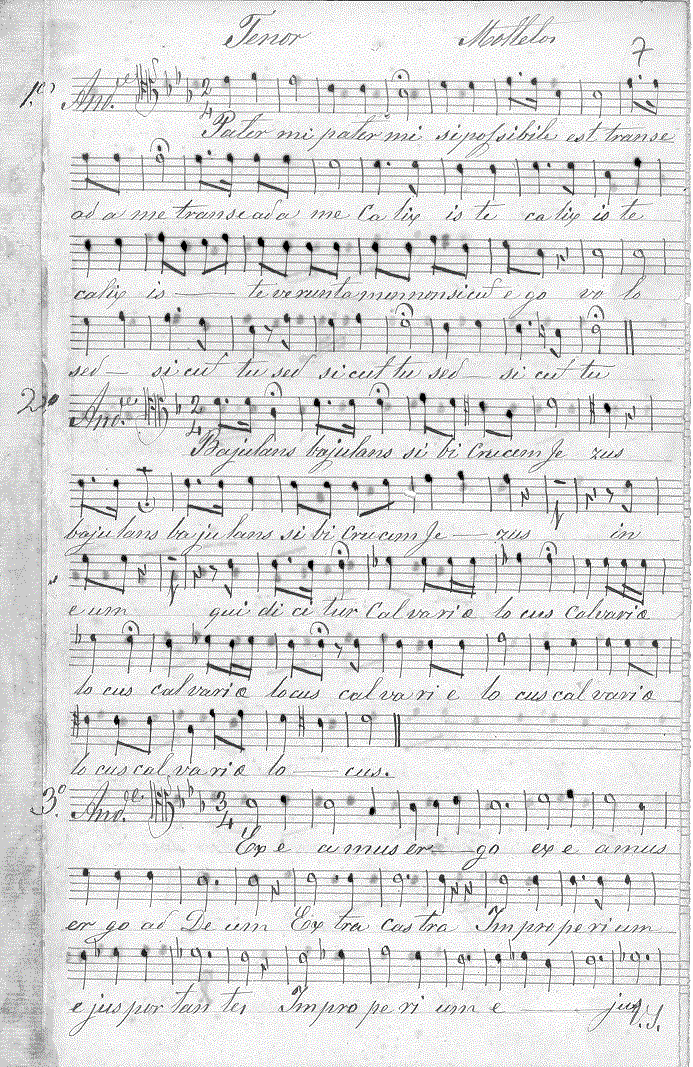 Tenor Mottetos
7
1º And.e 2 4
Pater mi pater mi si possibile est transe
ad a me transeada me Calix is te calix is te
calix is — te verunta mennonsicud e go vo lo
sed — si cud tu sed si cut tu sed — si cut tu
2º And.e 2 4
Bajulans bajulans si bi Crucem Je zus
bajulans ba ju lans si bi Crucem Je — zus in
e um qui di ci tur Cal varie lo cus Calvarie
lo cus cal varie locus cal va ri e lo cus cal varie
lo cus cal va rie lo — cus.
3º And.e 3 4
Ex e a mus er go ex e amus
er go ad De um Ex tra castra Impro pe ri um
e jus por tan tes Impro pe ri um e — jus
V.S.